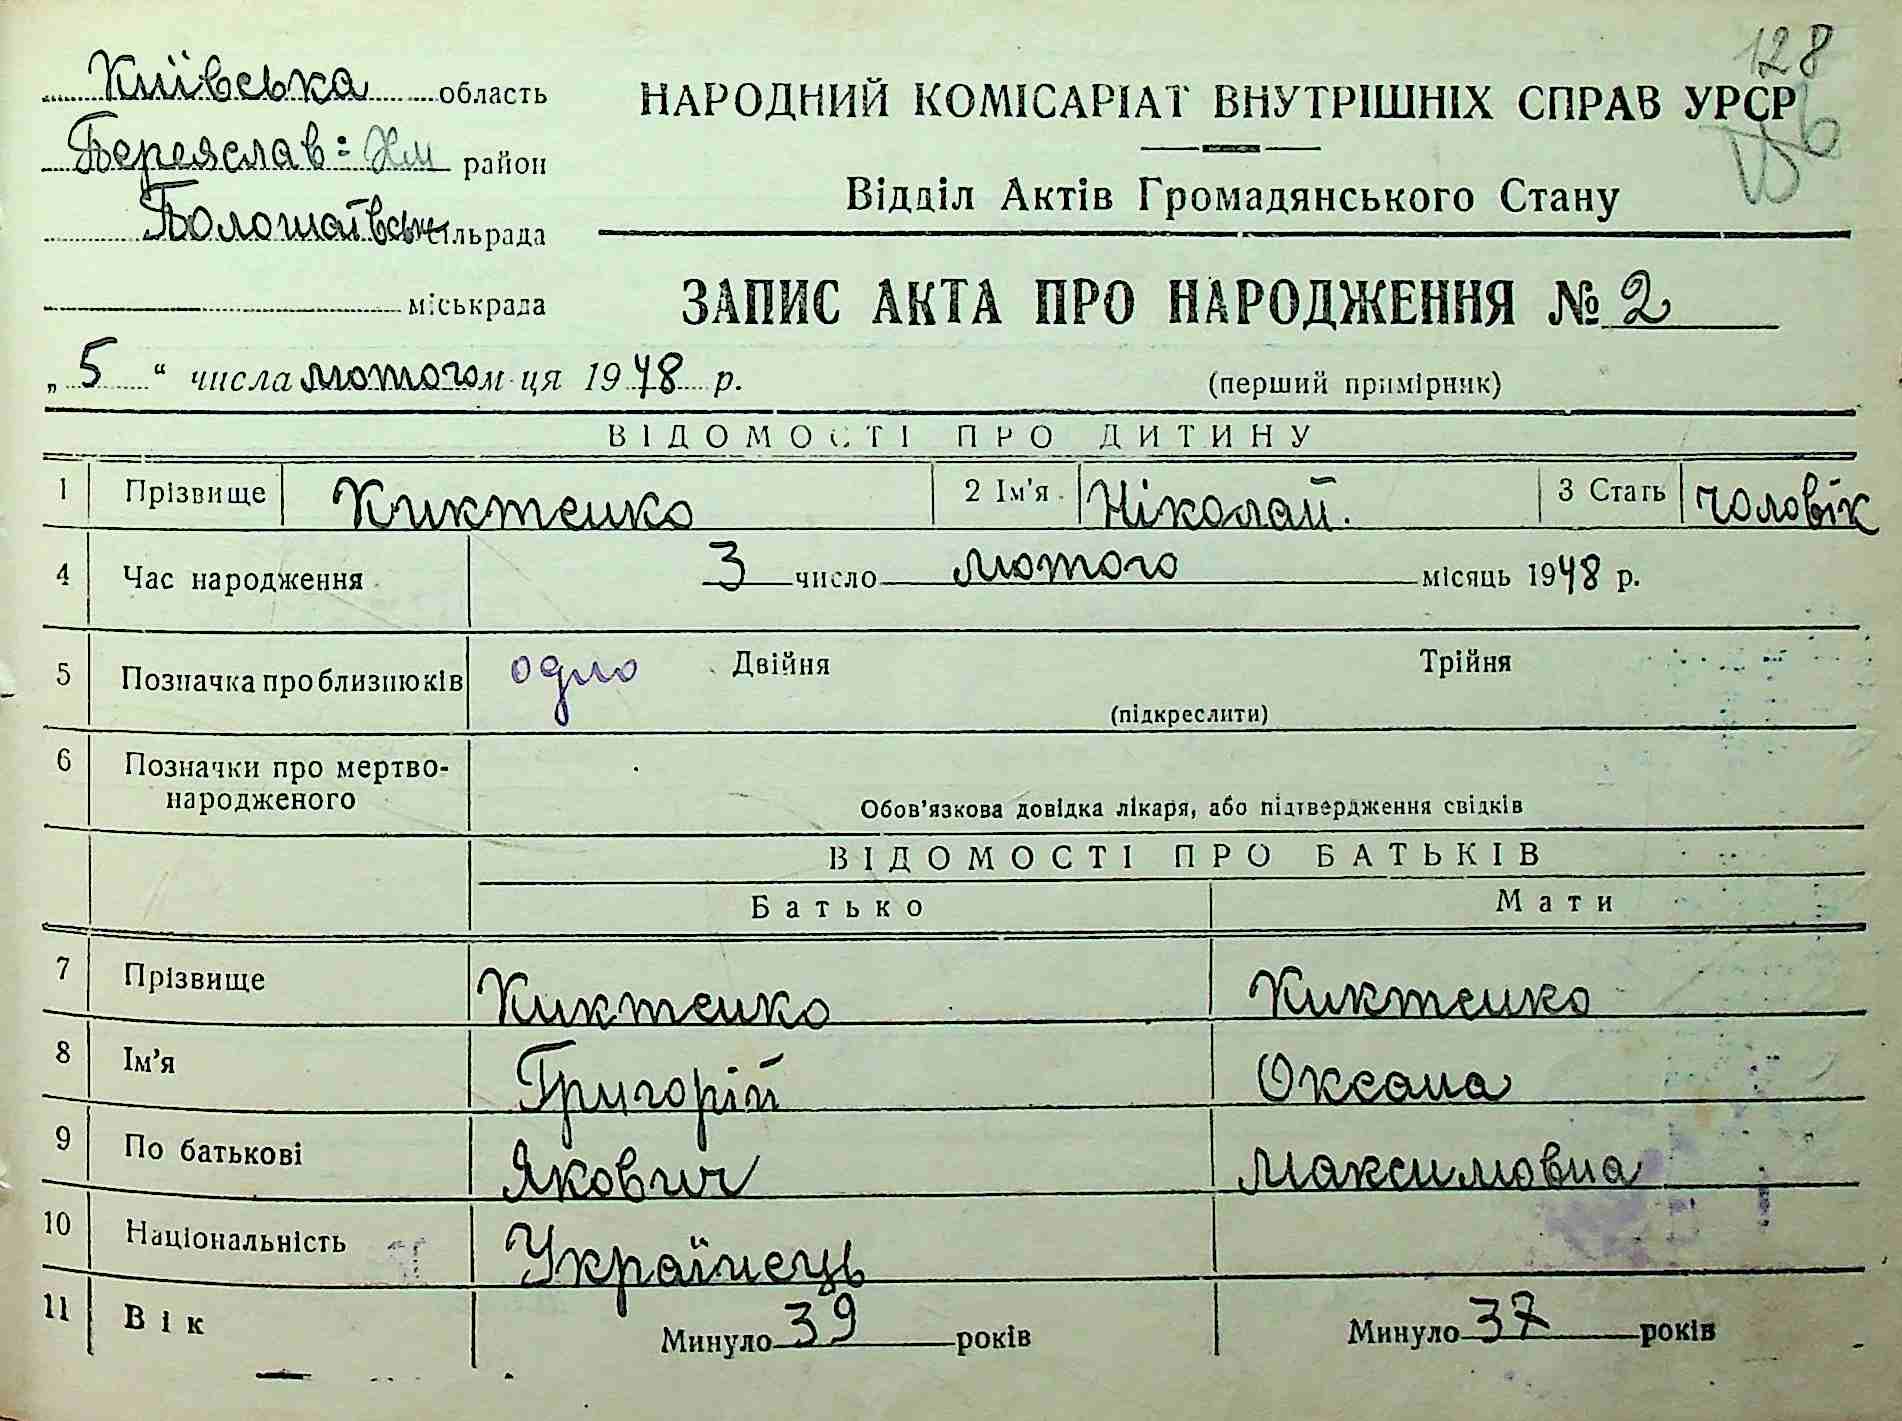 128
Київська область
НАРОДНИЙ КОМІСАРІАТ ВНУТРІШНІХ СПРАВ УРСР
Переяслав=Хм район
Відділ Актів Громадянського Стану
сільрада
міськрада
ЗАПИС АКТА ПРО НАРОДЖЕННЯ № 2
„5“ числа лютого м-ця 1948 р.
(перший примірник)
ВІДОМОСТІ ПРО ДИТИНУ
1 Прізвище Киктенко 2 Ім'я Ніколай. 3 Стать чоловік
4 Час народження 3 число лютого місяць 1948 р.
5 Позначка про близнюків одно Двійня Трійня
(підкреслити)
6 Позначки про мертво-
народженого
Обов'язкова довідка лікаря, або підтвердження свідків
ВІДОМОСТІ ПРО БАТЬКІВ
Батько Мати
7 Прізвище Киктенко Киктенко
8 Ім'я Григорій Оксана
9 По батькові Якович Максимовна
10 Національність Українець
11 Вік Минуло 39 років Минуло 37 років